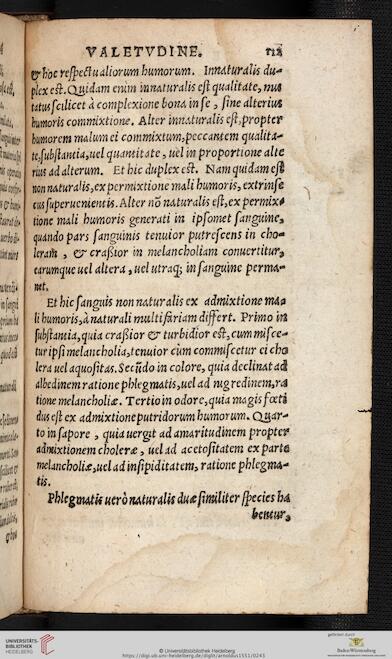 VALETVDINE. 112
& hoc respectu aliorum humorum. Innaturalis du-
plex est. Quidam enim innaturalis est qualitate, mu
tatus scilicet à complexione bona in se, sine alterius
humoris commixtione. Alter innaturalis est, propter
humorem malum ei commixtum, peccantem qualita-
te, substantia, uel quantitate, uel in proportione alte
rius ad alterum. Et hic duplex est. Nam quidam est
non naturalis, ex permixtione mali humoris, extrinse
cus superuenientis. Alter nō naturalis est, ex permix-
tione mali humoris generati in ipsomet sanguine,
quando pars sanguinis tenuior putrescens in cho-
leram, & crassior in melancholiam conuertitur,
earumque uel altera, uel utraq; in sanguine perma-
net.
Et hic sanguis non naturalis ex admixtione ma-
li humoris, à naturali multifariam differt. Primo in
substantia, quia crassior & turbidior est, cum misce-
tur ipsi melancholia, tenuior cùm commiscetur ei cho
lera uel aquositas. Secūdo in colore, quia declinat ad
albedinem ratione phlegmatis, uel ad nigredinem, ra
tione melancholiæ. Tertio in odore, quia magis fœti
dus est ex admixtione putridorum humorum. Quar-
to in sapore, quia uergit ad amaritudinem propter
admixtionem choleræ, uel ad acetositatem ex parte
melancholiæ, uel ad insipiditatem, ratione phlegma-
tis.
Phlegmatis uerò naturalis duæ similiter species ha
bentur,
UNIVERSITÄTS-
BIBLIOTHEK
HEIDELBERG
© Universitätsbibliothek Heidelberg
https://digi.ub.uni-heidelberg.de/diglit/arnoldus1551/0243
gefördert durch
Baden-Württemberg